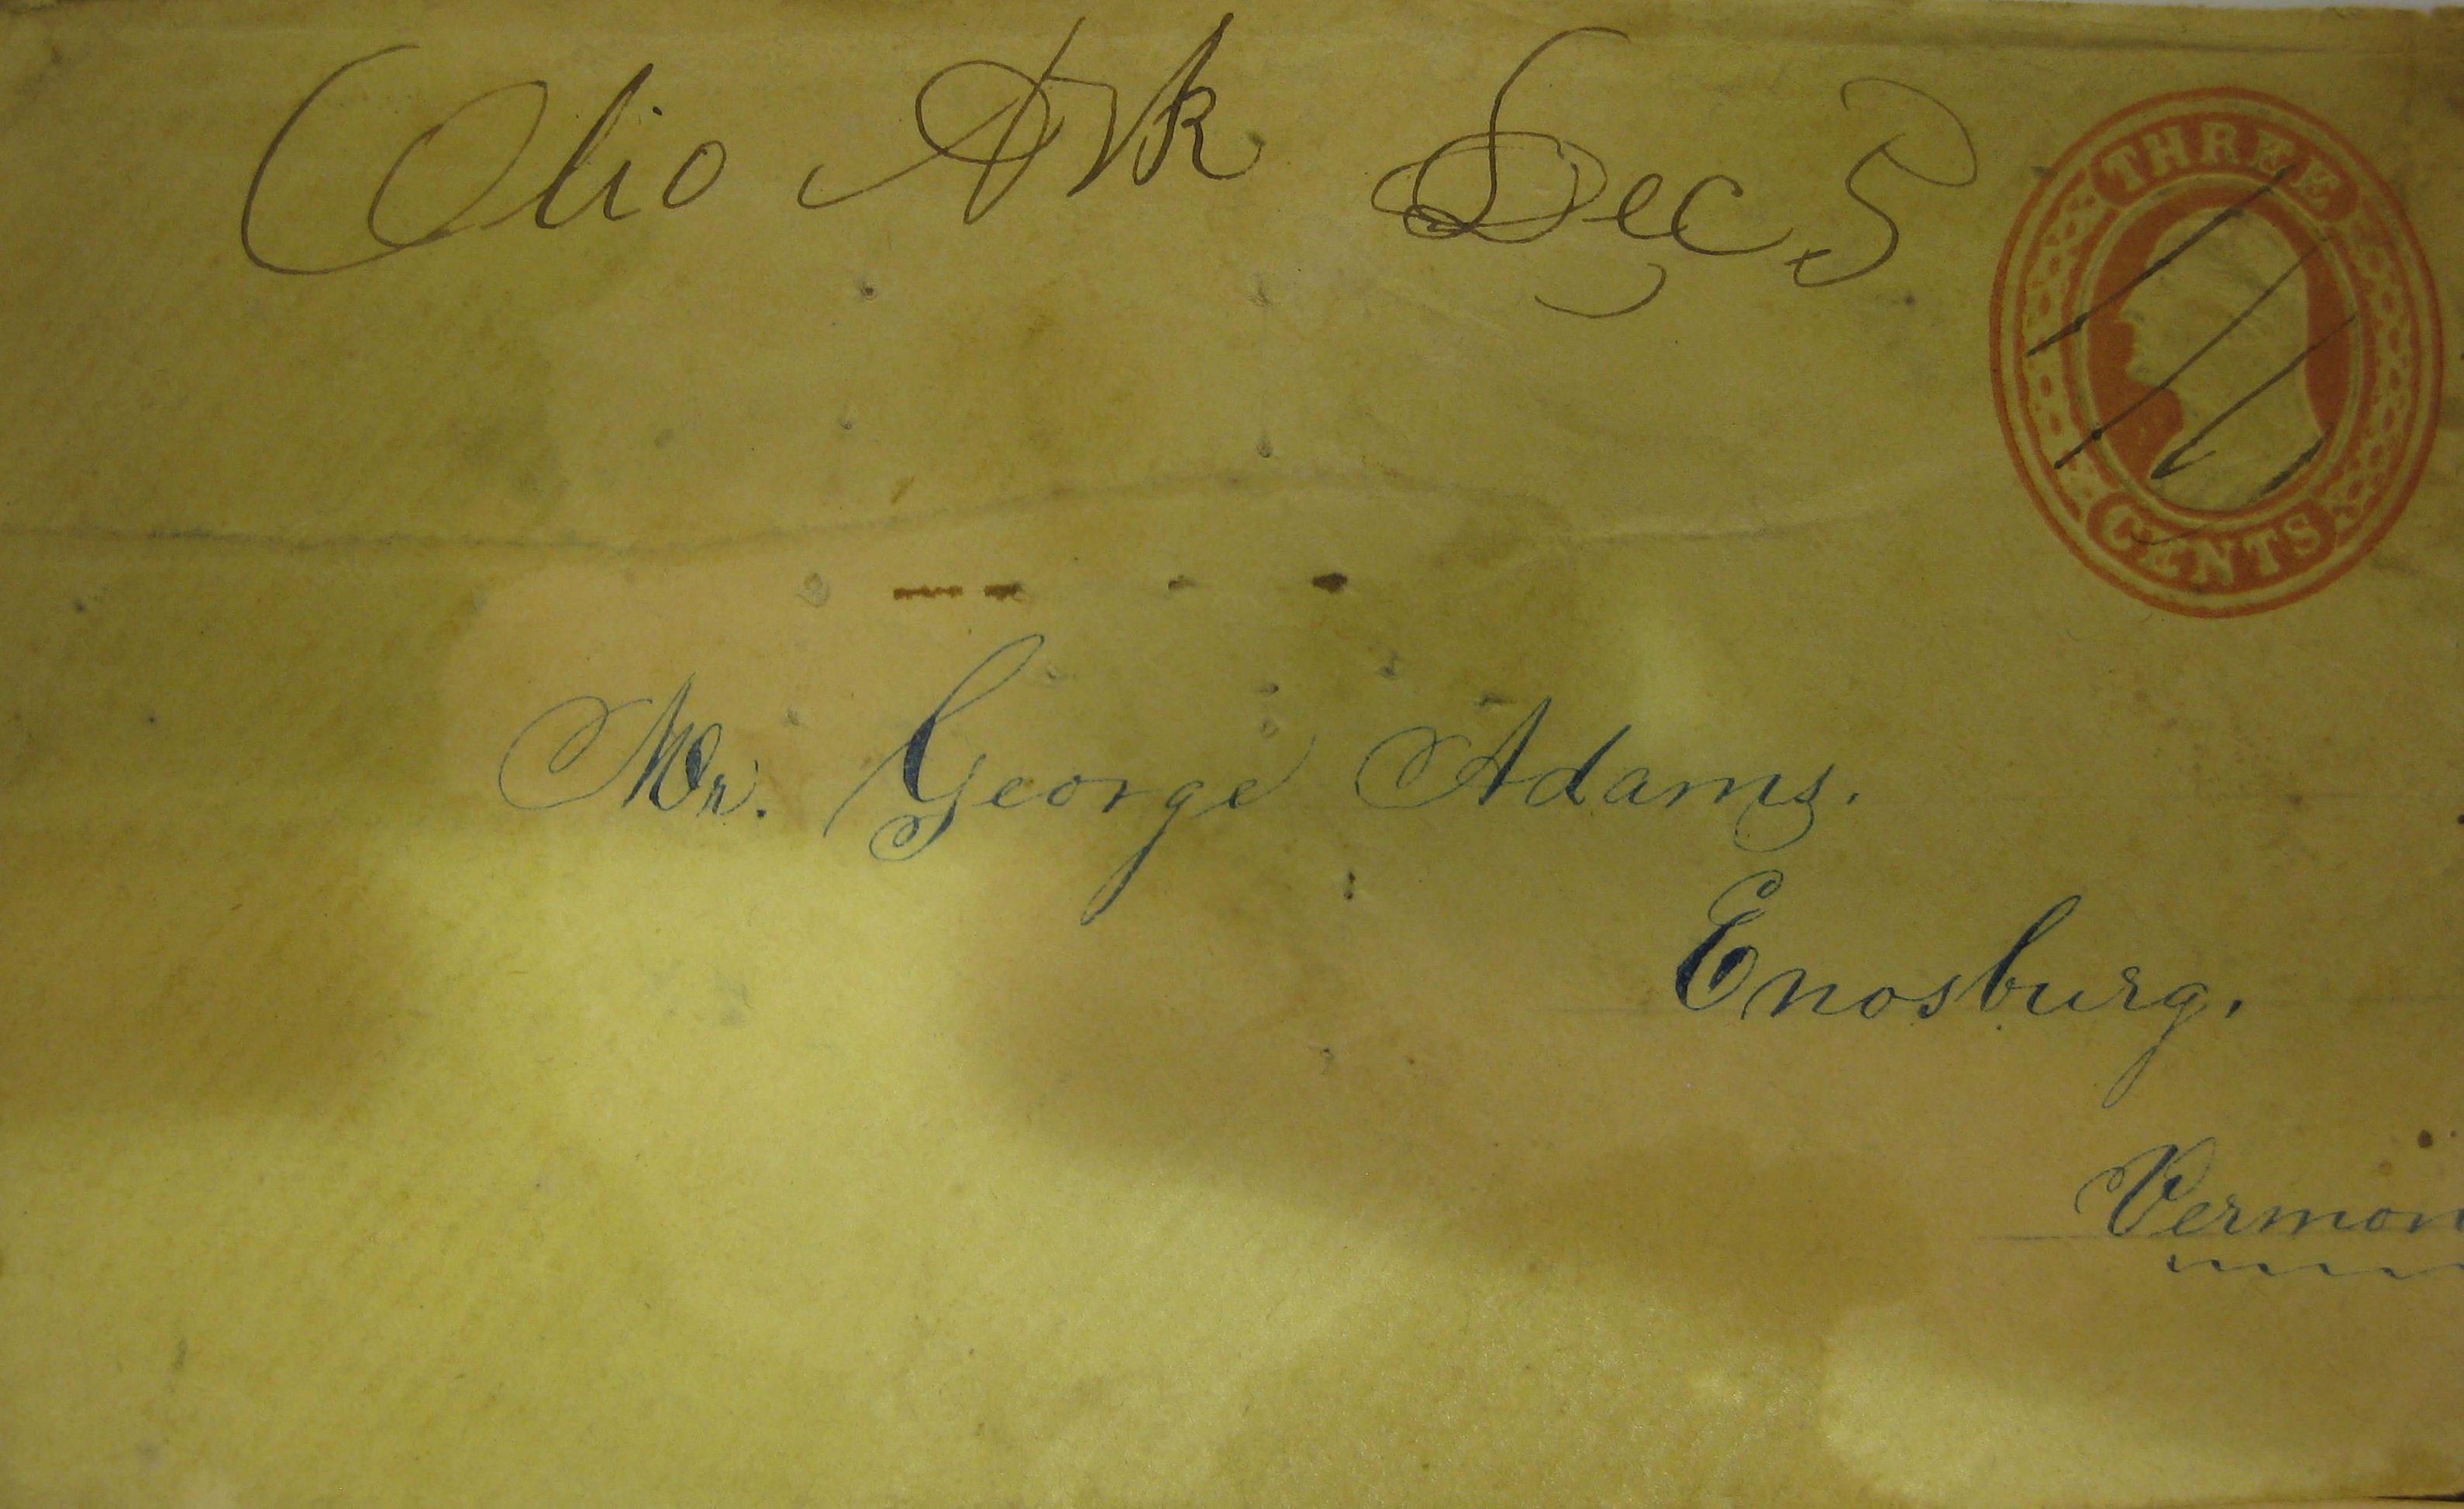 Olio Ark Dec 5
THREE
CENTS
Mr. George Adams.
Enosburg.
Vermon